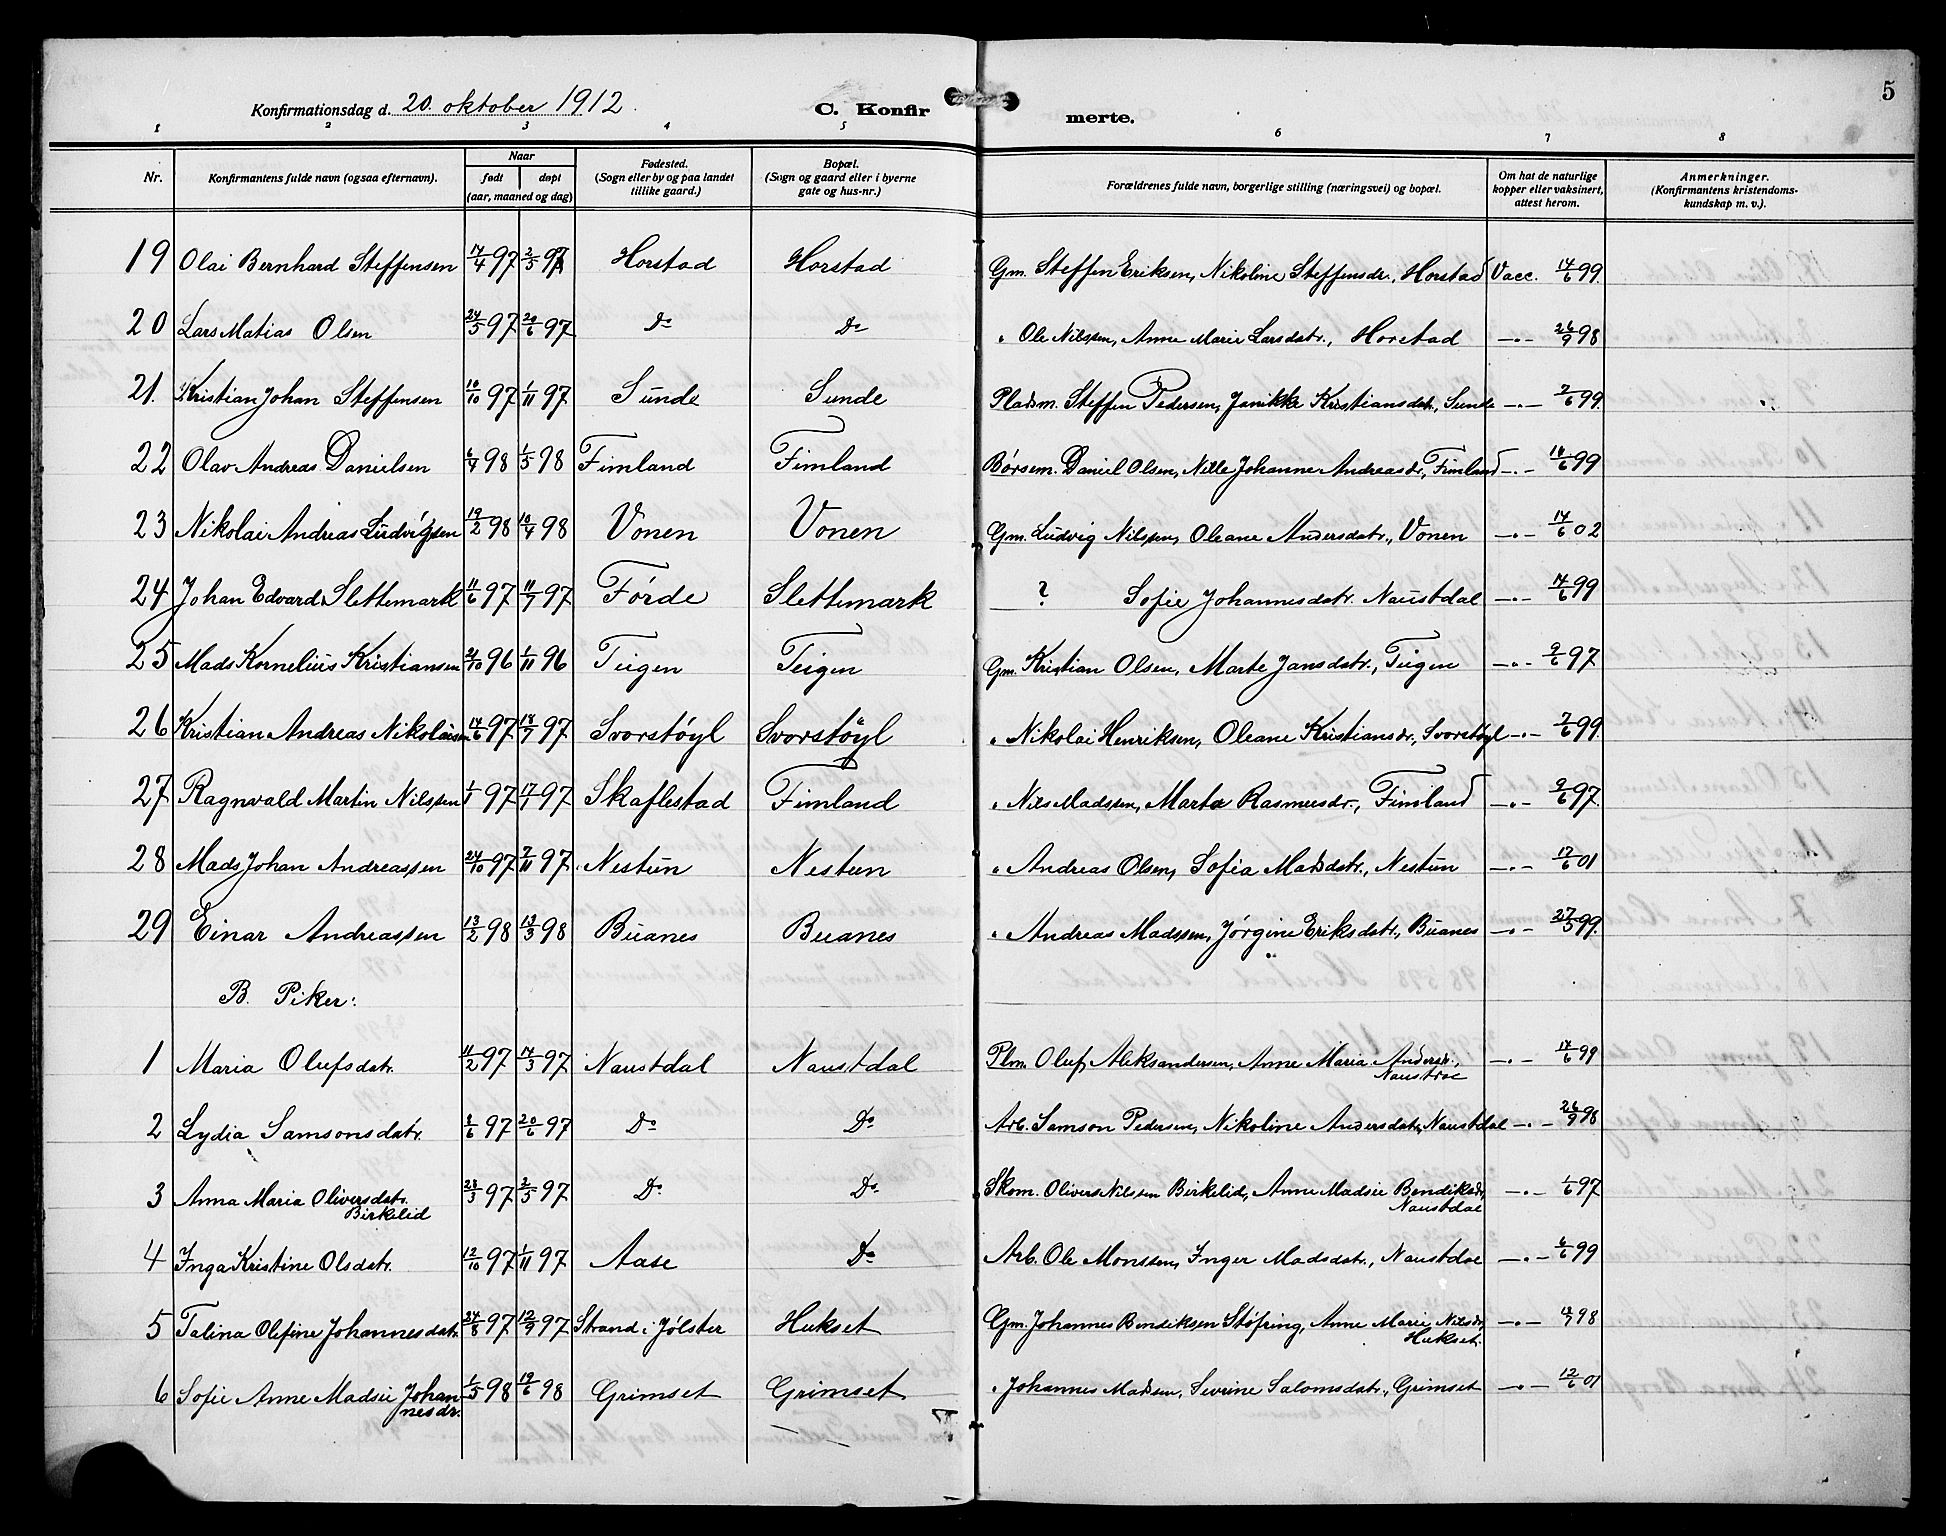 5
Konfirmationsdag d. 20. oktober 1912. C. Konfir merte.
1 2 3 4 5 6 7 8
Nr. Konfirmantens fulde navn (ogsaa efternavn). Naar født døpt (aar, maaned og dag) Fødested. (Sogn eller by og paa landet tillike gaard.) Bopæl. (Sogn og gaard eller i byerne gate og hus-nr.) Forældrenes fulde navn, borgerlige stilling (næringsvei) og bopæl. Om hat de naturlige kopper eller vaksinert, attest herom. Anmerkninger. (Konfirmantens kristendoms-kundskap m. v.).
19 Olai Bernhard Steffensen 17/4 97 2/5 97 Horstad Horstad Gm. Steffen Eriksen, Nikoline Steffensdr., Horstad Vacc. 14/6 99.
20 Lars Matias Olsen 24/5 97 20/6 97 Do Do " Ole Nilssen, Anne Marie Larsdatr., Horstad —"— 26/9 98
21. Kristian Johan Steffensen 10/10 97 1/11 97 Sunde Sunde Pladsm. Steffen Pedersen, Janikke Kristiansdatr., Sunde —"— 2/6 99.
22 Olav Andreas Danielsen 6/4 98 1/5 98 Fimland Fimland Børsem. Daniel Olsen, Nille Johanne Andreasdr., Fimland —"— 14/6 99
23 Nikolai Andreas Ludvigsen 19/2 98 10/4 98 Vonen Vonen Gm. Ludvig Nilssen, Oleane Andersdatr., Vonen —"— 14/6 02
24 Johan Edvard Slettemark 11/6 97 11/7 97 Førde Slettemark ? Sofie Johannesdatr. Naustdal —"— 14/6 99
25 Mads Kornelius Kristiansen 21/10 96 1/11 96 Teigen Teigen Gm. Kristian Olsen, Marte Jansdatr., Teigen —"— 9/6 97
26 Kristian Andreas Nikolaisen 14/6 97 18/7 97 Svorstøyl Svorstøyl " Nikolai Henriksen, Oleane Kristiansdr., Svorstøyl —"— 2/6 99.
27 Ragnvald Martin Nilssen 1/1 97 17/1 97 Skaflestad Fimland " Nils Madssen, Marta Rasmusdr., Fimland —"— 9/6 97.
28 Mads Johan Andreassen 24/10 97 7/11 97 Nestun Nestun " Andreas Olsen, Sofia Madsdatr., Nestun —"— 12/6 01
29 Einar Andreassen 13/2 98 13/3 98 Buanes Buanes " Andreas Madssen, Jørgine Eriksdatr., Buanes —"— 27/5 99.
B. Piker:
1 Maria Olufsdatr. 11/2 97 14/3 97 Naustdal Naustdal Plm. Oluf Aleksandersen, Anne Maria Andersdr., —"— 14/6 99
Naustdal
2 Lydia Samsonsdatr. 2/6 97 20/6 97 Do Do Arb. Samson Pedersen, Nikoline Andersdatr., Naustdal —"— 26/9 98
3 Anna Maria Oliversdatr. 28/3 97 2/5 97 Do Do Skom. Olivers Nilssen Birkelid, Anne Madsie Bendiksdr., —"— 1/6 97
Birkelid Naustdal
4 Inga Kristine Olsdatr. 12/10 97 1/11 97 Aase Do Arb. Ole Monssen, Inger Madsdatr., Naustdal —"— 6/6 99
5 Talina Olefine Johannesdatr. 24/8 97 12/9 97 Strand i Jølster Hukset Gm. Johannes Bendiksen Støfring, Anne Marie Nilsdr., —"— 98
Hukset.
6 Sofie Anne Madsie Johan 1/5 98 19/6 98 Grimset Grimset " Johannes Madsen, Sevrine Salomsdatr., Grimset —"— 12/6 01
nesdr.